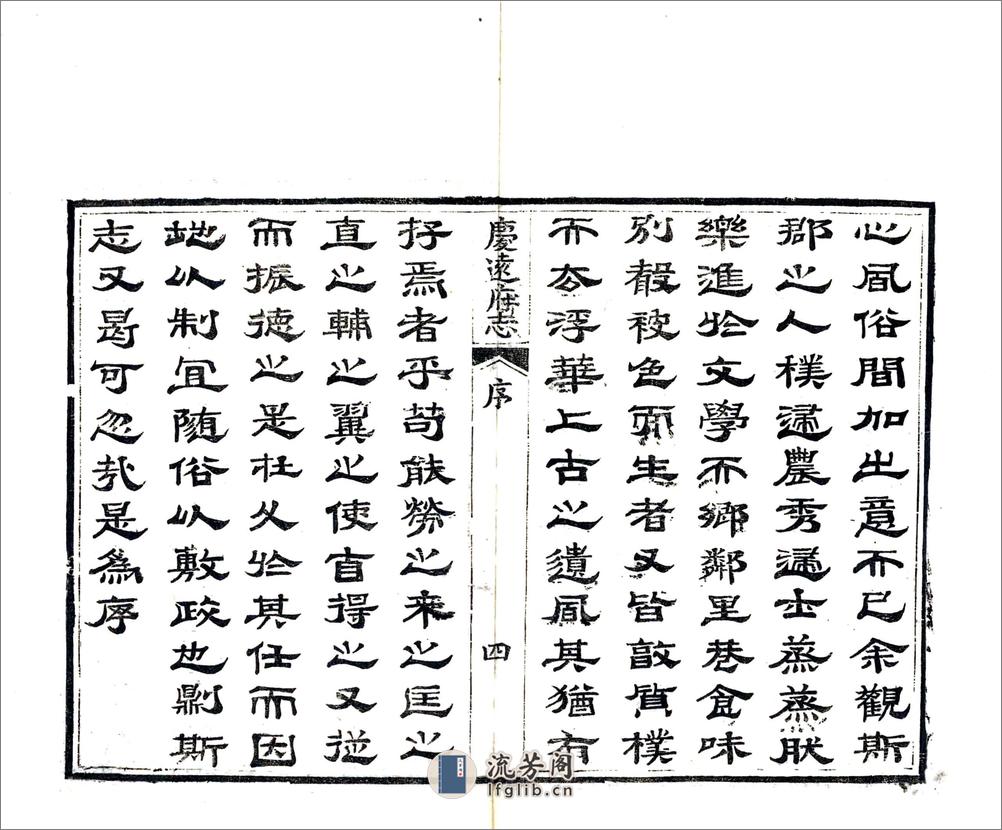 心風俗間加之意而已余觀斯
郡之人樸歸農秀歸士蒸蒸然
樂進於文學而鄉鄰里巷食味
別聲被色而生者又皆敦質樸
而去浮華上古之遺風其猶有
慶遠府志 序 四
存焉者乎苟能勞之来之匡之
直之輔之翼之使自得之又從
而振德之是在久於其任而因
地以制宜随俗以敷政也則斯
志又曷可忽哉是為序
流芳阁
lfglib.cn